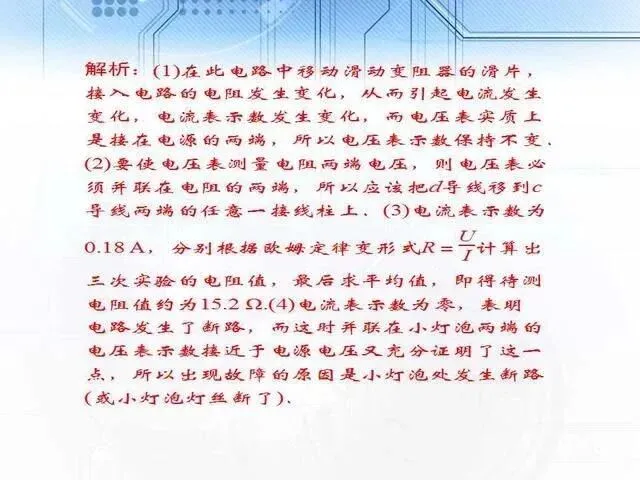 解析：(1)在此电路中移动滑动变阻器的滑片，
接入电路的电阻发生变化，从而引起电流发生
变化，电流表示数发生变化，而电压表实质上
是接在电源的两端，所以电压表示数保持不变．
(2)要使电压表测量电阻两端电压，则电压表必
须并联在电阻的两端，所以应该把d导线移到c
导线两端的任意一接线柱上．(3)电流表示数为
0.18 A，分别根据欧姆定律变形式R=U/I计算出
三次实验的电阻值，最后求平均值，即得待测
电阻值约为15.2 Ω.(4)电流表示数为零，表明
电路发生了断路，而这时并联在小灯泡两端的
电压表示数接近于电源电压又充分证明了这一
点，所以出现故障的原因是小灯泡处发生断路
(或小灯泡灯丝断了)．